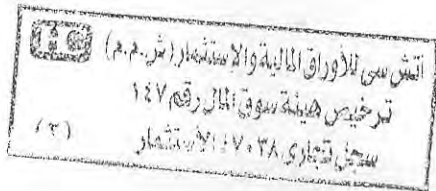 اتش سى للأوراق المالية والإستثمار (ش.م.م)
ترخيص هيئة سوق المال رقم ١٤٧
سجل تجارى ٤٧٠٣٨ الاستثمار
(٣)